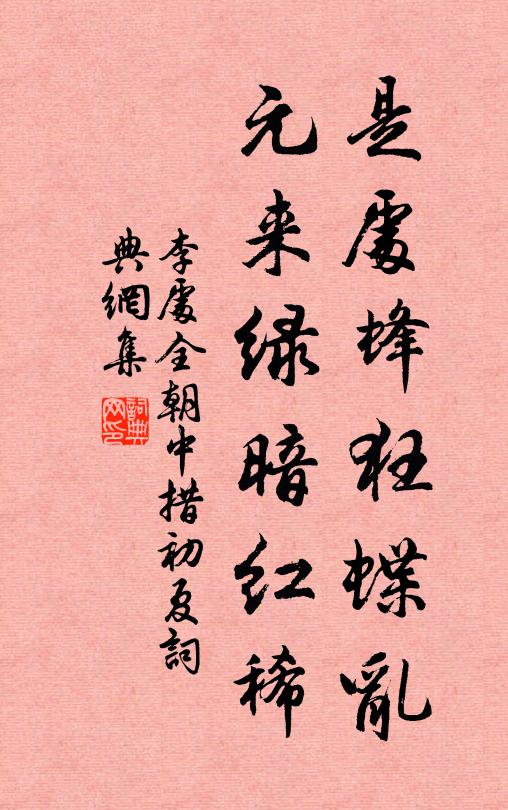 是處蜂狂蝶亂
元来緑暗红稀
李處全朝中措初夏詞
典網集
詞典網印